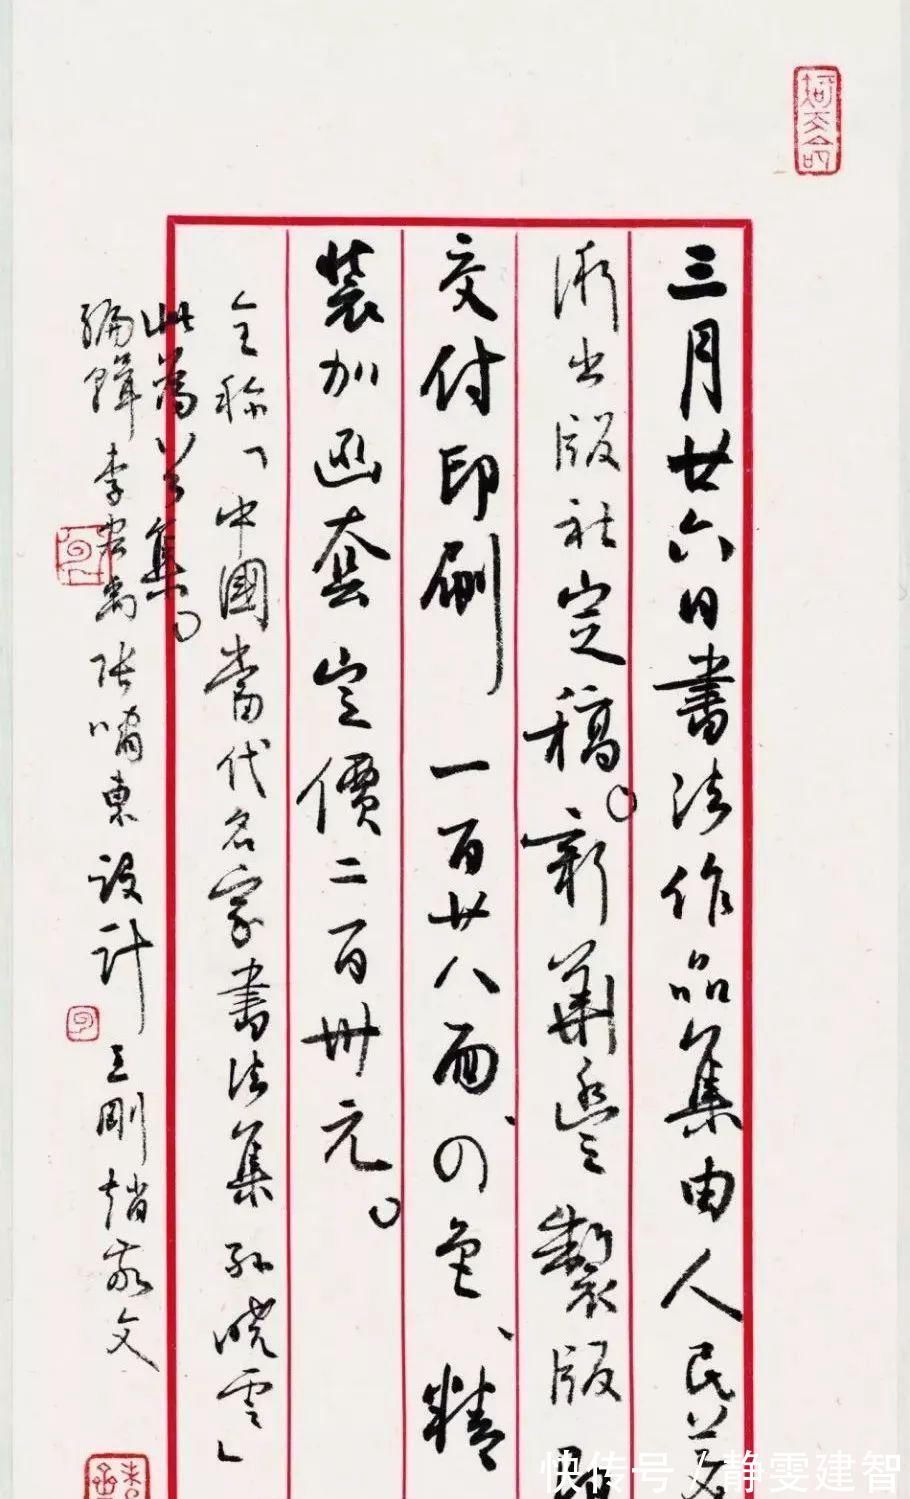 三月廿六日書法作品集由人民美
術出版社定稿。新華豐製版
交付印刷 一百廿八面、四色、精
裝加函套 定價二百卅元。
全称「中國當代名家書法集 孙曉雲」
此為集。
編輯 李宏禹 張嘯東 設計 王剛 趙文
快传号 / 静雯建智